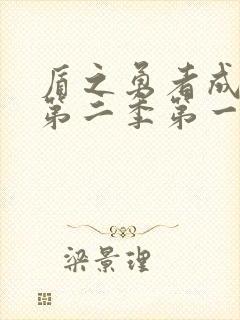 盾之勇者成
第二季第一
梁景理